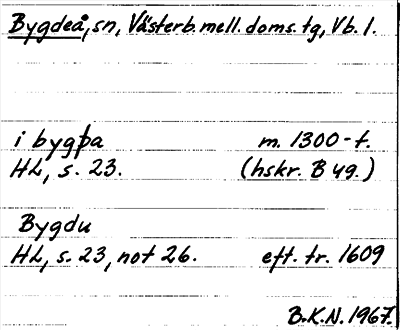 Bygdeå, sn, Västerb. mell. doms. tg, Vb. l.
i bygþa m. 1300-t.
HL, s. 23. (hskr. B yg.)
Bygdu
HL, s. 23, not 26. eft. tr. 1609
B.K.N. 1967.